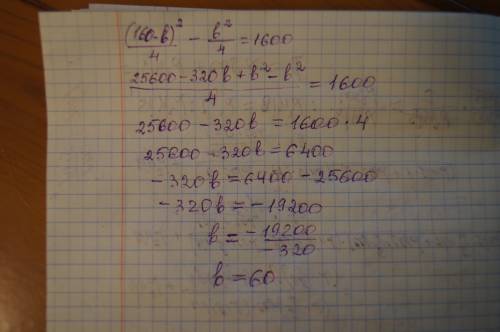 (160-в)²/4 - в²/4 = 1600
25600-320в+в²-в²/4 = 1600
25600-320в = 1600·4
25600-320в = 6400
-320в = 6400-25600
-320в = -19200
в = -19200/-320
в = 60